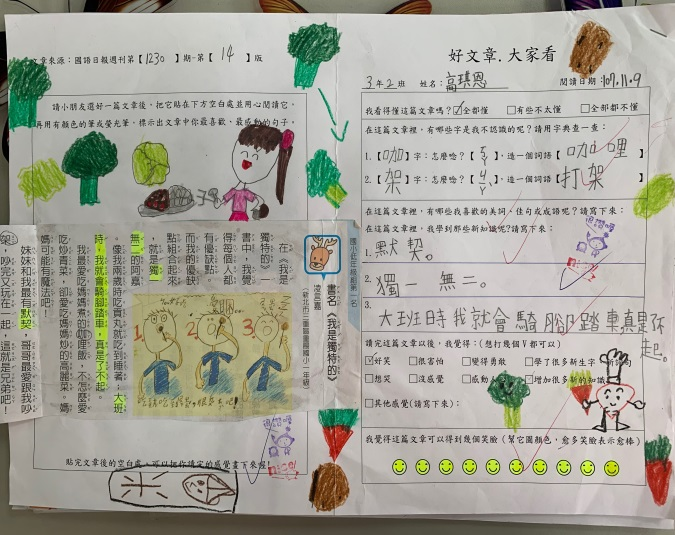 文章來源：國語日報週刊第【1230】期-第【14】版
請小朋友選好一篇文章後，把它貼在下方空白處並用心閱讀它，
再用有顏色的筆或螢光筆，標示出文章中你最喜歡、最感動的句子。
國小低年級組第一名
書名《我是獨特的》
凌萱嘉
（新北市三重區重陽國小一年級）
在《我是
獨特的》
書中，我覺
得每個人都
有優缺點，
而我的優缺
點結合起來
，就是獨一
無二的阿嘉
。像我兩歲時吃貢丸就吃到睡著，大班
時，我就會騎腳踏車，真是了不起。
我最愛吃媽媽煮的咖哩飯，不怎麼愛
吃炒青菜，卻愛吃媽媽炒的高麗菜。媽
媽可能有魔法吧！
妹妹和我最有默契，哥哥最愛跟我吵
架，吵完又玩在一起，這就是兄弟吧！
貼完文章後的空白處，可以把你讀完的感覺畫下來喔！
好文章．大家看
3年2班 姓名：高琪恩 閱讀日期：107.11.9
我看得懂這篇文章嗎？☑全都懂 □有些不太懂 □全部都不懂
在這篇文章裡，有哪些字是我不認識的呢？請用字典查一查：
1.【咖】字：怎麼唸？【ㄎㄚ】，造一個詞語【咖哩】
2.【架】字：怎麼唸？【ㄐㄧㄚˋ】，造一個詞語【打架】
在這篇文章裡，有哪些我喜歡的美詞、佳句或成語呢？請寫下來：
在這篇文章裡，我學到那些新知識呢？請寫下來：
1.默契。
2.獨一無二。
3.大班時我就會騎腳踏車真是了不起。
請完這篇文章以後，我覺得：（想打幾個V都可以）
☑好笑 □很害怕 □變得勇敢 □學了很多新生字
□想笑 □沒感覺 □感動 □增加很多新的知識
□其他感覺（請寫下來）：
我覺得這篇文章可以得到幾個笑臉（幫它圖顏色，愈多笑臉表示愈棒）